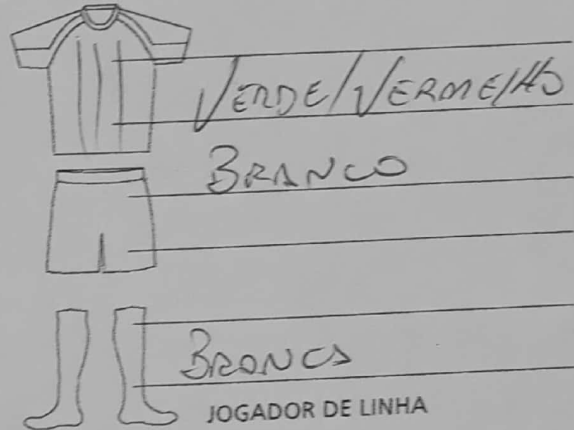 VERDE/VERMELHO
BRANCO
BRANCO
JOGADOR DE LINHA